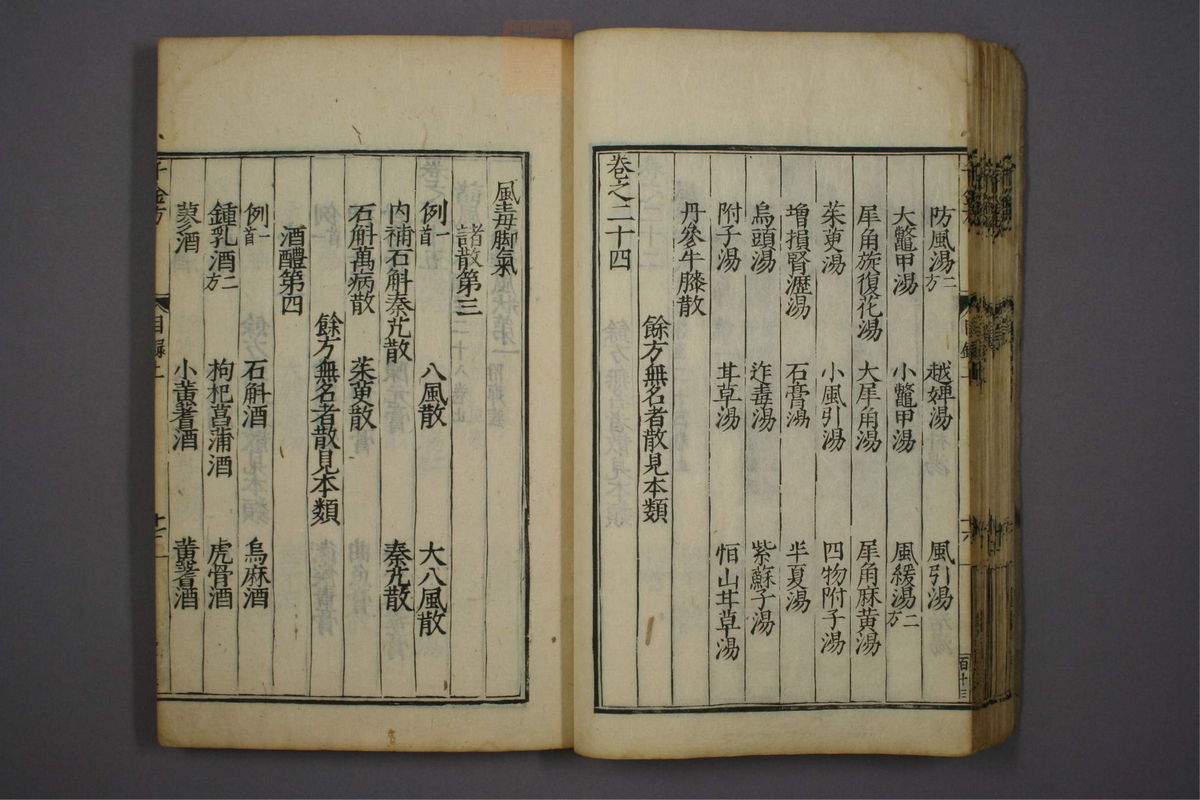 防風湯二方 越婢湯 風引湯
大鼈甲湯 小鼈甲湯 風緩湯二方
犀角旋復花湯 大犀角湯 犀角麻黄湯
茱萸湯 小風引湯 四物附子湯
增損腎瀝湯 石膏湯 半夏湯
烏頭湯 迮毒湯 紫蘇子湯
附子湯 甘草湯 恒山甘草湯
丹參牛膝散
餘方無名者散見本類
卷之二十四
風毒脚氣
諸散第三
例一首 八風散 大八風散
内補石斛秦艽散 秦艽散
石斛萬病散 茱萸散
餘方無名者散見本類
酒醴第四
例一首 石斛酒 烏麻酒
鍾乳酒二方 枸杞菖蒲酒 虎骨酒
蓼酒 小黄耆酒 黄耆酒
千金方 目録上
百十三